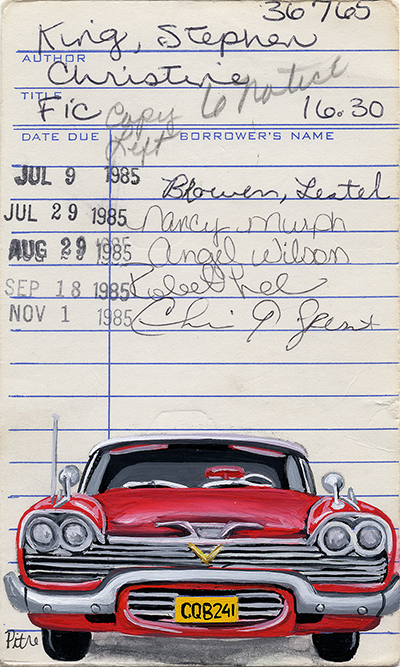 36765
King, Stephen
AUTHOR
Christine
TITLE
Fic Copy 6 Notice 16.30
Left
DATE DUE BORROWER'S NAME
JUL 9 1985 Blowen, Lestel
JUL 29 1985 Nancy Murph
AUG 29 1985 Angel Wilson
SEP 18 1985 Robert Lee
NOV 1 1985
CQB241
Pitre